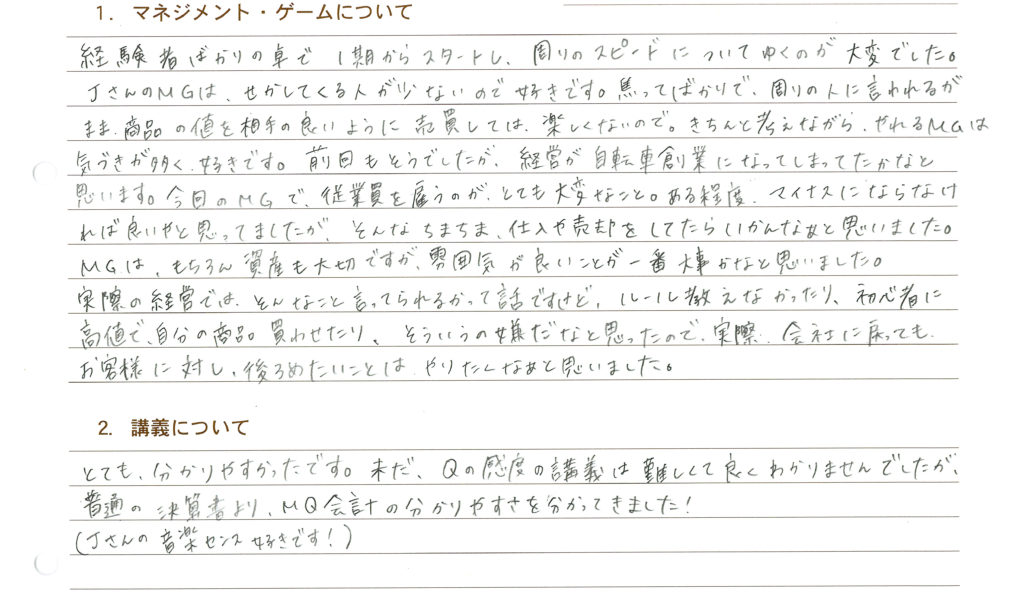 1. マネジメント・ゲームについて
経験者ばかりの卓で 1期からスタートし、周りのスピードについてゆくのが大変でした。
JさんのMGは、せかしてくる人が少ないので好きです。焦ってばかりで、周りの人に言われるが
まま、商品の値を相手の良いように売買しては、楽しくないので。きちんと考えながら、やれるMGは
気づきが多く、好きです。前回もそうでしたが、経営が自転車創業になってしまってたかなと
思います。今回のMGで、従業員を雇うのが、とても大変なこと。ある程度、マイナスにならなけ
れば良いやと思ってましたが、そんなちまちま、仕入や売却をしてたらいかんなぁと思いました。
MGは、もちろん資産も大切ですが、雰囲気が良いことが一番大事かなと思いました。
実際の経営では、そんなこと言ってられるかって話ですけど、ルール教えなかったり、初心者に
高値で、自分の商品買わせたり、そういうの嫌だなと思ったので、実際、会社に戻っても、
お客様に対し、後ろめたいことは、やりたくなぁと思いました。
2. 講義について
とても、分かりやすかったです。未だ、Qの感度の講義は難しくて良くわかりませんでしたが、
普通の決算書より、MQ会計の分かりやすさを分かってきました！
(Jさんの音楽センス好きです！)